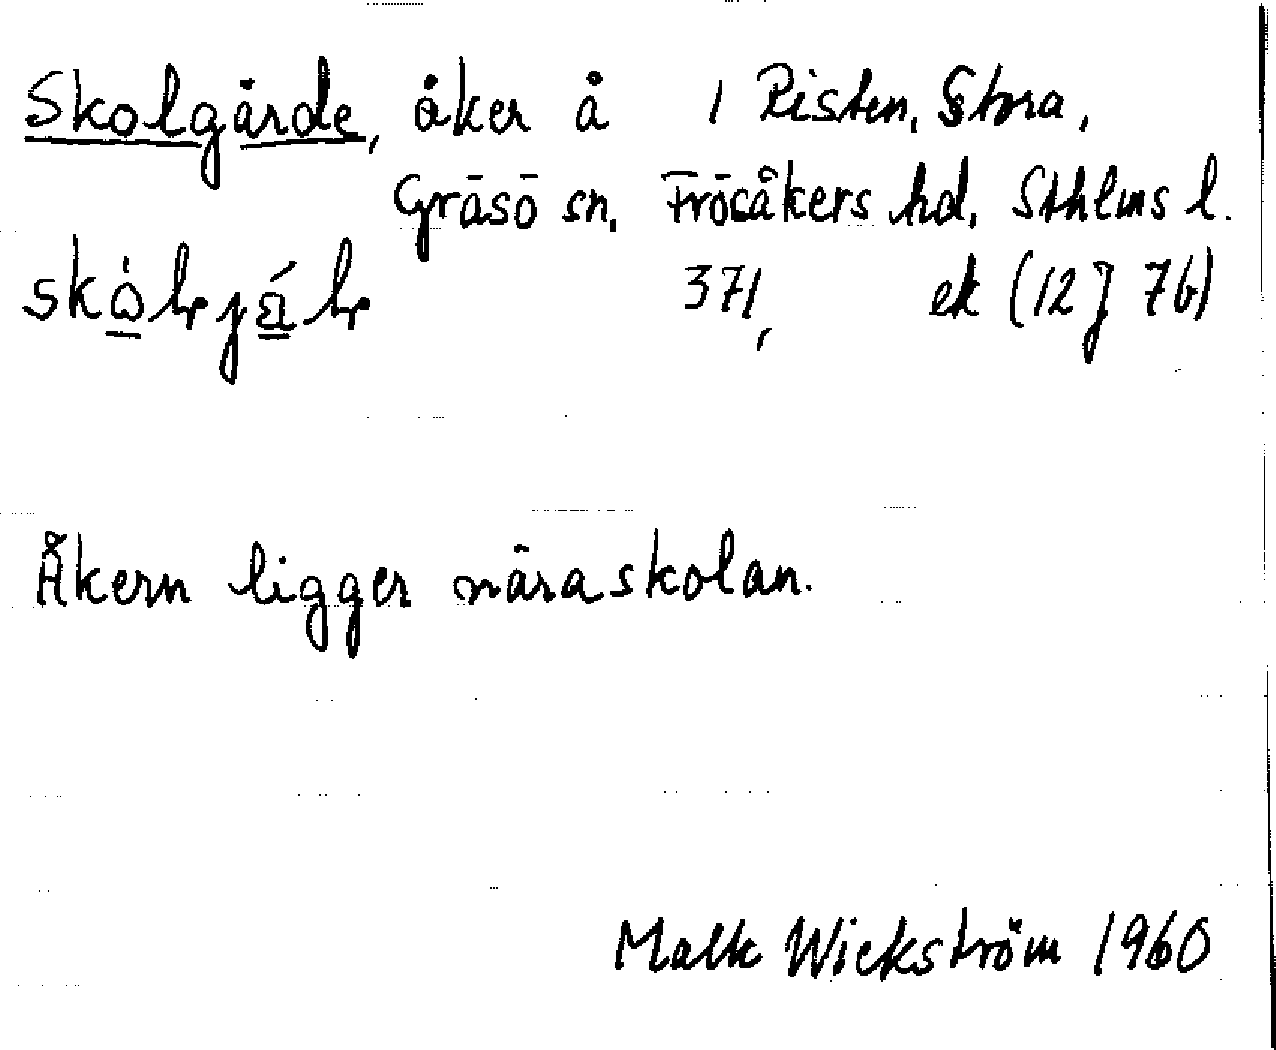 Skolgärde, åker å 1 Risten, Stora,
Gräsö sn, Frösåkers hd, Sthlms l.
371, ek (12 J 7b)
Åkern ligger nära skolan.
Wickström 1960